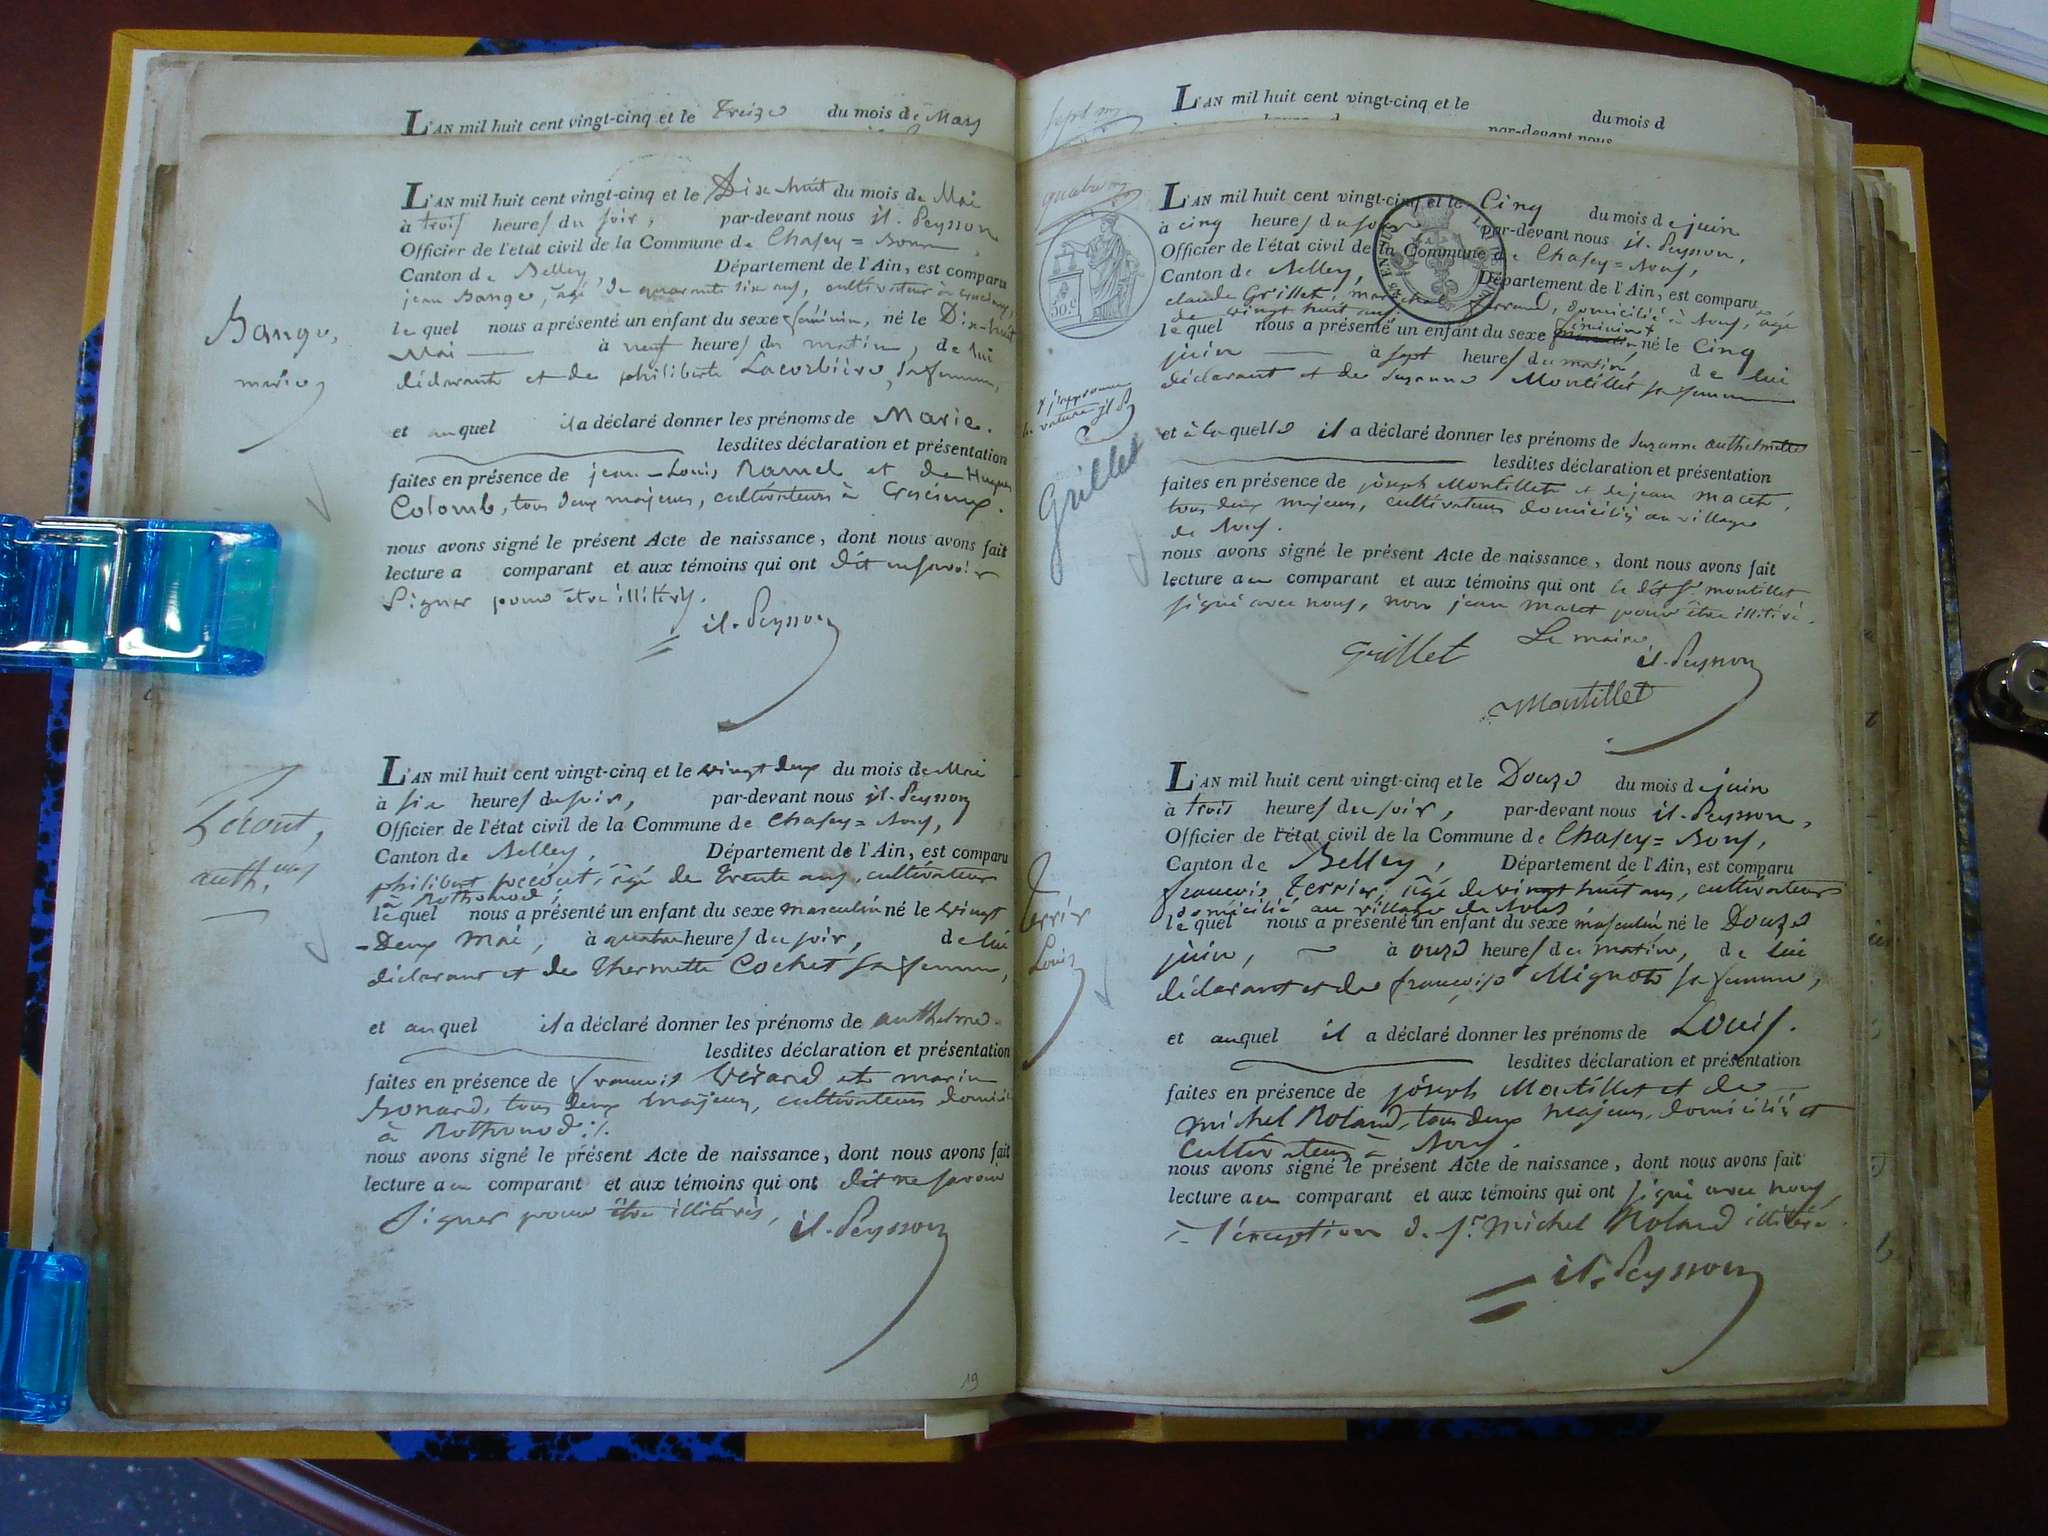 L'AN mil huit cent vingt-cinq et le Treize du mois de Mars
L'AN mil huit cent vingt-cinq et le Dix huit du mois de Mai
à trois heures du soir, par-devant nous it. Peysson
Officier de l'état civil de la Commune de Chasey =
Canton de Belley, Département de l'Ain, est comparu
jean Bange, agé de quarante six ans, cultivateur à
le quel nous a présenté un enfant du sexe féminin, né le Dix-huit
Mai à neuf heures du matin, de lui
déclarante et de philiberte Lacorbière, sa femme,
et auquel il a déclaré donner les prénoms de Marie.
lesdites déclaration et présentation
faites en présence de jean-Louis Ramel et de Hugues
Colomb, tous deux majeurs, cultivateurs à
nous avons signé le présent Acte de naissance, dont nous avons fait
lecture a comparant et aux témoins qui ont dit ne savoir
signer pour être illitérés.
it. Peysson
Bange,
marie
L'AN mil huit cent vingt-cinq et le vingt deux du mois de Mai
à six heures du soir, par-devant nous it. Peysson
Officier de l'état civil de la Commune de Chasey = Bons,
Canton de Belley, Département de l'Ain, est comparu
philibert âgé de trente ans, cultivateur
à Rothonod,
le quel nous a présenté un enfant du sexe masculin né le vingt
-Deux Mai, à quatre heures du soir, de lui
déclarant et de Thermette Cochet sa femme,
et auquel il a déclaré donner les prénoms de anthelme.
lesdites déclaration et présentation
faites en présence de françois Vérard et marin
Bonard, tous deux majeurs, cultivateurs domicil
à Rothonod ./.
nous avons signé le présent Acte de naissance, dont nous avons fait
lecture a eu comparant et aux témoins qui ont dit ne savoir
signer pour être illitérés,
it. Peysson
anth,
19
L'AN mil huit cent vingt-cinq et le du mois d
par-devant nous
L'AN mil huit cent vingt-cinq et le Cinq du mois de juin
à cinq heures du soir par-devant nous it. Peysson,
Officier de l'état civil de la Commune de Chasey = Bons,
Canton de Belley, Département de l'Ain, est comparu
claude Grillet, marechal ferrand, domicilié à Bons, âgé
de vingt huit ans
le quel nous a présenté un enfant du sexe féminin né le Cinq
juin à sept heures du matin, de lui
déclarant et de Suzanne Montillet sa femme
et à laquelle il a déclaré donner les prénoms de Suzanne anthelmette
lesdites déclaration et présentation
faites en présence de joseph Montillet et de jean macet,
tous deux majeurs, cultivateurs domiciliés au village
de Bons.
nous avons signé le présent Acte de naissance, dont nous avons fait
lecture a eu comparant et aux témoins qui ont le dit Sr montillet
signé avec nous, non jean macet pour être illitéré.
Grillet
Le maire
it. Peysson
Montillet
50 c.
Grillet
L'AN mil huit cent vingt-cinq et le Douze du mois de juin
à trois heures du soir, par-devant nous it. Peysson,
Officier de l'état civil de la Commune de Chasey = Bons,
Canton de Belley, Département de l'Ain, est comparu
francois terrier, âgé de vingt huit ans, cultivateur
domicilié au village de Bons
le quel nous a présenté un enfant du sexe masculin né le Douze
juin, à onze heures du matin, de lui
déclarant et de françoise Mignot sa femme,
et auquel il a déclaré donner les prénoms de Louis.
lesdites déclaration et présentation
faites en présence de joseph Montillet et de
michel Roland, tous deux majeurs, domiciliés et
Cultivateurs à Bons.
nous avons signé le présent Acte de naissance, dont nous avons fait
lecture a eu comparant et aux témoins qui ont signé avec nous,
à l'exception de Sr. michel Roland illitéré.
it. Peysson
Terrier
Louis